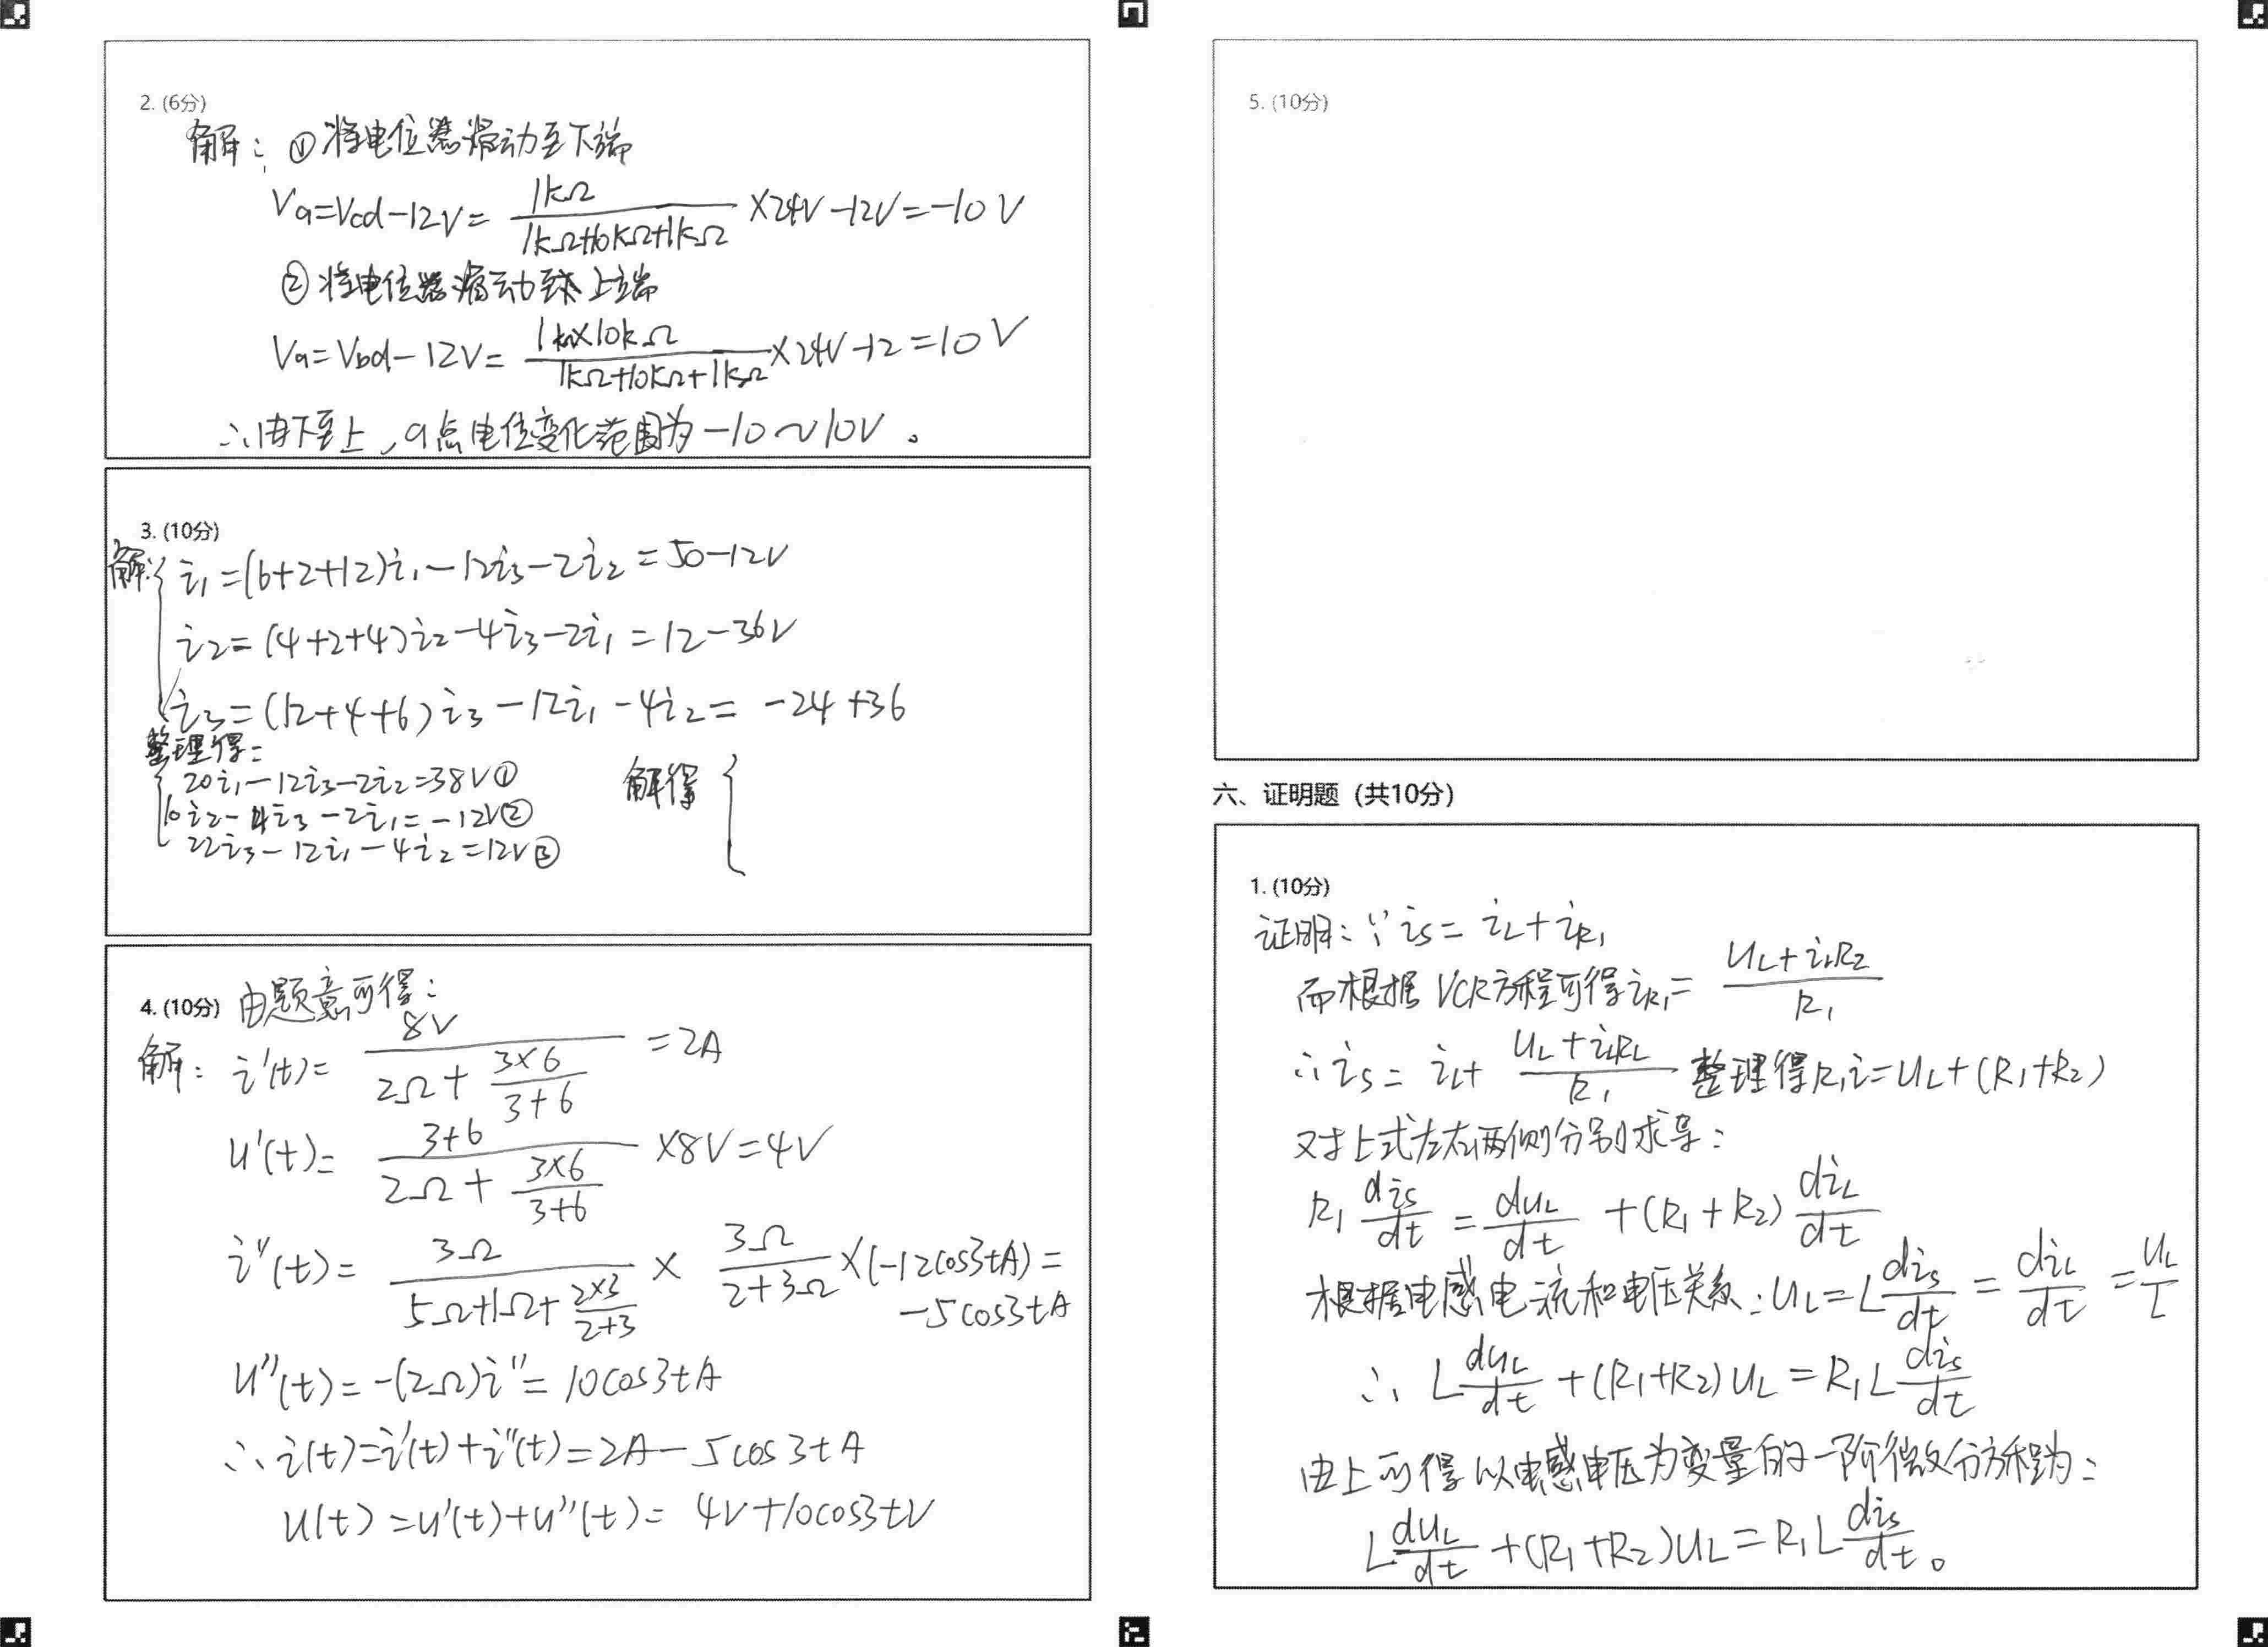 2. (6分)
解：①将电位器滑动至下端
Va=Vcd-12V= 1kΩ/(1kΩ+10kΩ+1kΩ) ×24V-12V=-10V
②将电位器滑动至 上端
Va=Vbd-12V= (1kΩ×10kΩ)/(1kΩ+10kΩ+1kΩ) ×24V-12=10V
∴由下至上，a点电位变化范围为-10~10V。
3. (10分)
解: { i₁=(6+2+12)i₁-12i₃-2i₂=50-12V
i₂=(4+2+4)i₂-4i₃-2i₁=12-36V
i₃=(12+4+6)i₃-12i₁-4i₂=-24+36
整理得:
{ 20i₁-12i₃-2i₂=38V①
10i₂-4i₃-2i₁=-12V②
22i₃-12i₁-4i₂=12V③
解得 {
4. (10分) 由题意可得:
解: i'(t)= 8V/(2Ω+(3×6)/(3+6)) =2A
u'(t)= (3+6)/(2Ω+(3×6)/(3+6)) ×8V=4V
i''(t)= 3Ω/(5Ω+1Ω+(2×3)/(2+3)) × 3Ω/(2+3Ω) ×(-12cos3tA)=
-5cos3tA
u''(t)=-(2Ω)i''=10cos3tA
∴i(t)=i'(t)+i''(t)=2A-5cos3tA
u(t)=u'(t)+u''(t)=4V+10cos3tV
5. (10分)
六、证明题（共10分）
1. (10分)
证明:∵is=iL+iR₁
而根据VCR方程可得iR₁= (uL+iLR₂)/R₁
∴is=iL+ (uL+iLRL)/R₁ 整理得R₁i=uL+(R₁+R₂)
对上式左右两侧分别求导:
R₁ dis/dt = duL/dt +(R₁+R₂) diL/dt
根据电感电流和电压关系:uL=L dis/dt = diL/dt = uL/L
∴ L duL/dt +(R₁+R₂)uL=R₁L dis/dt
由上可得以电感电压为变量的一阶微分方程为:
L duL/dt +(R₁+R₂)uL=R₁L dis/dt。